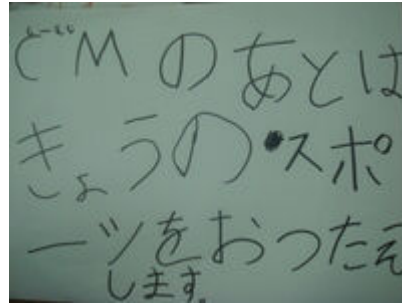 どMのあとは
きょうの・スポ
ーツをおつたえ
します。